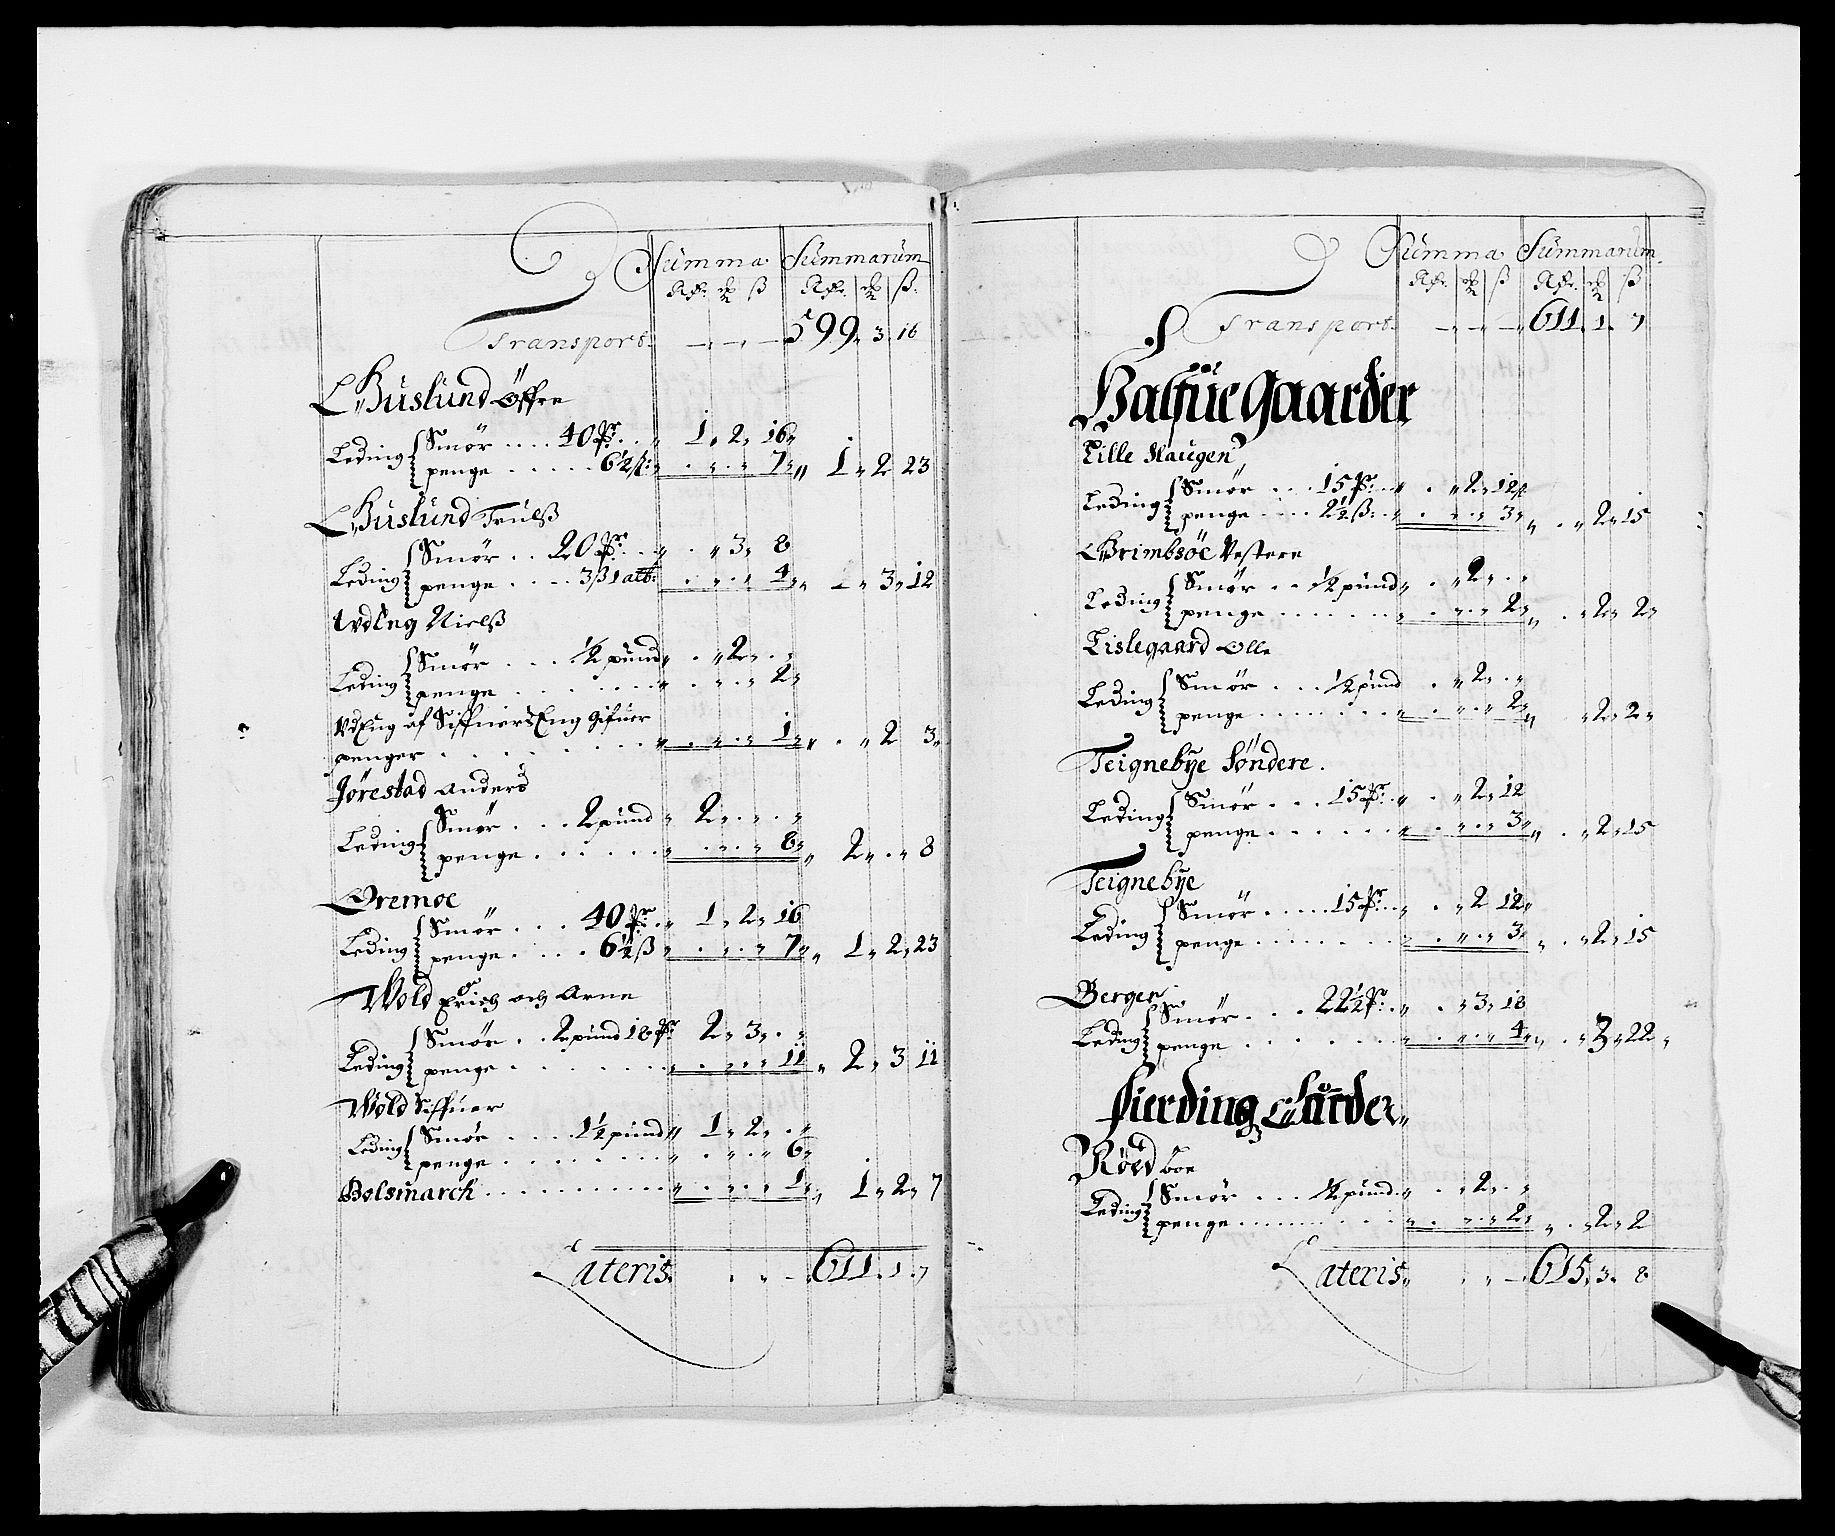 Summa Summarum
Rdr. ß Rdr. ß
Transport — 599 " 3 " 16
Buslund Öffre
Leding Smör .... 40 " 1 " 2 " 16 "
penge ..... 6½ ß: " . " . " 7 " " 1 " 2 23
Buslund Trulß
Leding Smör .. 20 " . " 3 " 8
penge .... 3 ß 1 alb: . " . " 4 " 3 " 12
Udeng Nielß
Leding Smör ... ½ pund " . " 2 " . "
penge ....... " . " . " 2 "
UdEng af Siffuers Eng gifuer
penger ........ " . " . " 1 " " . " 2 3 "
Jörestad Anders
Leding Smör ... 2 pund " 2 " . " . "
penge ...... " . " . " 8 " " 2 " . " 8
Oremoe
Leding Smör ... 40 " 1 " 2 " 16
penge .... 6½ ß " . " . " 7 " " 1 " 2 " 23
Wold Erich och Arne
Leding Smör .. 2 pund 18 2 " 3 " . "
penge ....... " . " . " 11 " 2 " 3 11
Wold Siffuer
Leding Smör .... 1½ pund " 1 " 2 " . "
penge ........ " . " . " 6 "
Bolsmarck .......... " . " . " 1 " " 1 " 2 " 7
Lateris " . " — 611 " 1 " 7
Summa Summarum.
Rdr. ß Rdr. ß
Transport — 611 " 1 " 7
Halfue Gaarder
Lille Haugen
Leding Smör ... 15 " . " 2 " 12 ß
penge .... 2½ ß: " . " . " 3 " " . " 2 " 15
Grimbsöe Vestere
Leding Smör .. ½ pund " . " 2 " . "
penge ...... " . " . " 2 " " . " 2 " 2 "
Lislegaard Olle
Leding Smör ... ½ pund . " 2 " . "
penge ....... " . " . " 2 " " " 2 " 2 "
Teignebye Söndere .
Leding Smör ... 15 " . " 2 " 12
penge ...... " . " . " 3 " " . " 2 " 15
Teignebye
Leding Smör ..... 15 " . " 2 12 "
penge ....... " . " . " 3 " " . " 2 " 15
Berger
Leding Smör ... 22½ " . " 3 " 18
penge ...... " . " . " 4 " " . " 3 " 22 "
Fierding Gaarder "
Röed
Leding Smör ... ½ pund . " . " 2 " . "
penge ......... " . " . " 2 " " . " 2 " 2
Lateris " . " — 615 " 3 " 8